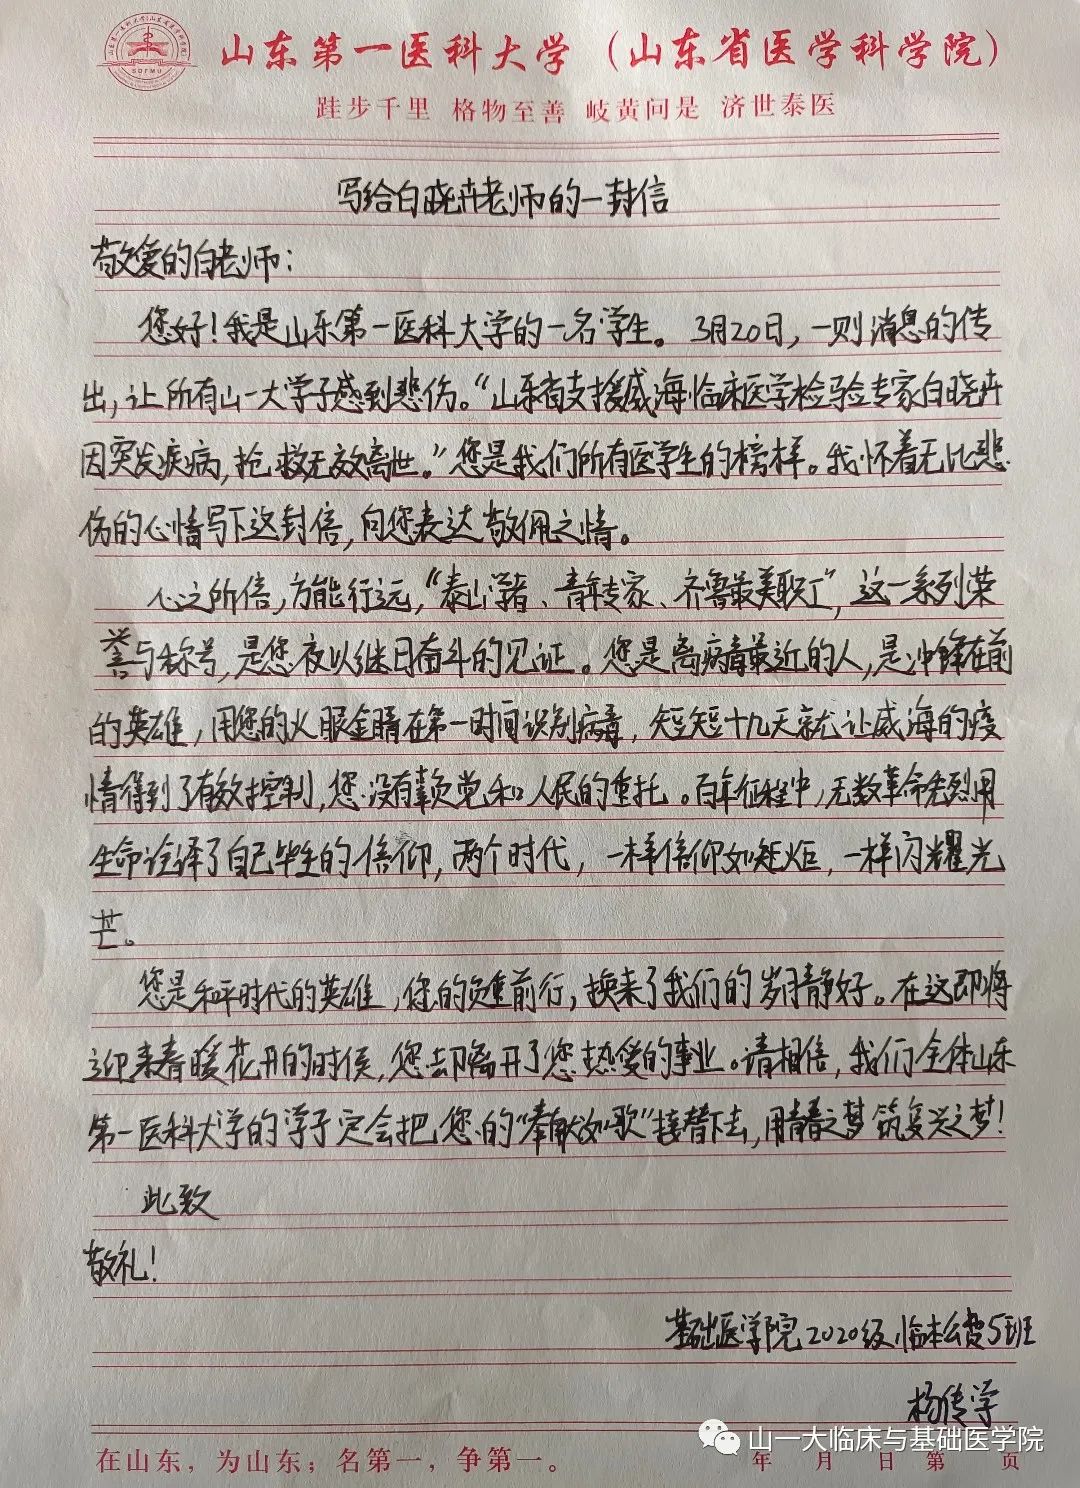 山东第一医科大学（山东省医学科学院）
跬步千里 格物至善 岐黄问是 济世泰医
写给白晓卉老师的一封信
敬爱的白老师：
您好！我是山东第一医科大学的一名学生。3月20日，一则消息的传
出，让所有山一大学子感到悲伤。“山东省支援威海临床医学检验专家白晓卉
因突发疾病，抢救无效离世。”您是我们所有医学生的榜样。我怀着无比悲
伤的心情写下这封信，向您表达敬佩之情。
心之所信，方能行远，“泰山学者、青年专家、齐鲁最美职工”，这一系列荣
誉与称号，是您夜以继日奋斗的见证。您是离病毒最近的人，是冲锋在前
的英雄，用您的火眼金睛在第一时间识别病毒，短短十九天就让威海的疫
情得到了有效控制，您没有辜负党和人民的重托。百年征程中，无数革命先烈用
生命诠译了自己毕生的信仰，两个时代，一样信仰如炬火，一样闪耀光
芒。
您是和平时代的英雄，您的负重前行，换来了我们的岁月静好。在这即将
迎来春暖花开的时候，您却离开了您热爱的事业。请相信，我们全体山东
第一医科大学的学子定会把您的“奉献如歌”接替下去，用青春之梦筑复兴之梦！
此致
敬礼！
基础医学院2020级临本公费5班
杨传学
山一大临床与基础医学院
在山东，为山东；名第一，争第一。 年 月 日 第 页